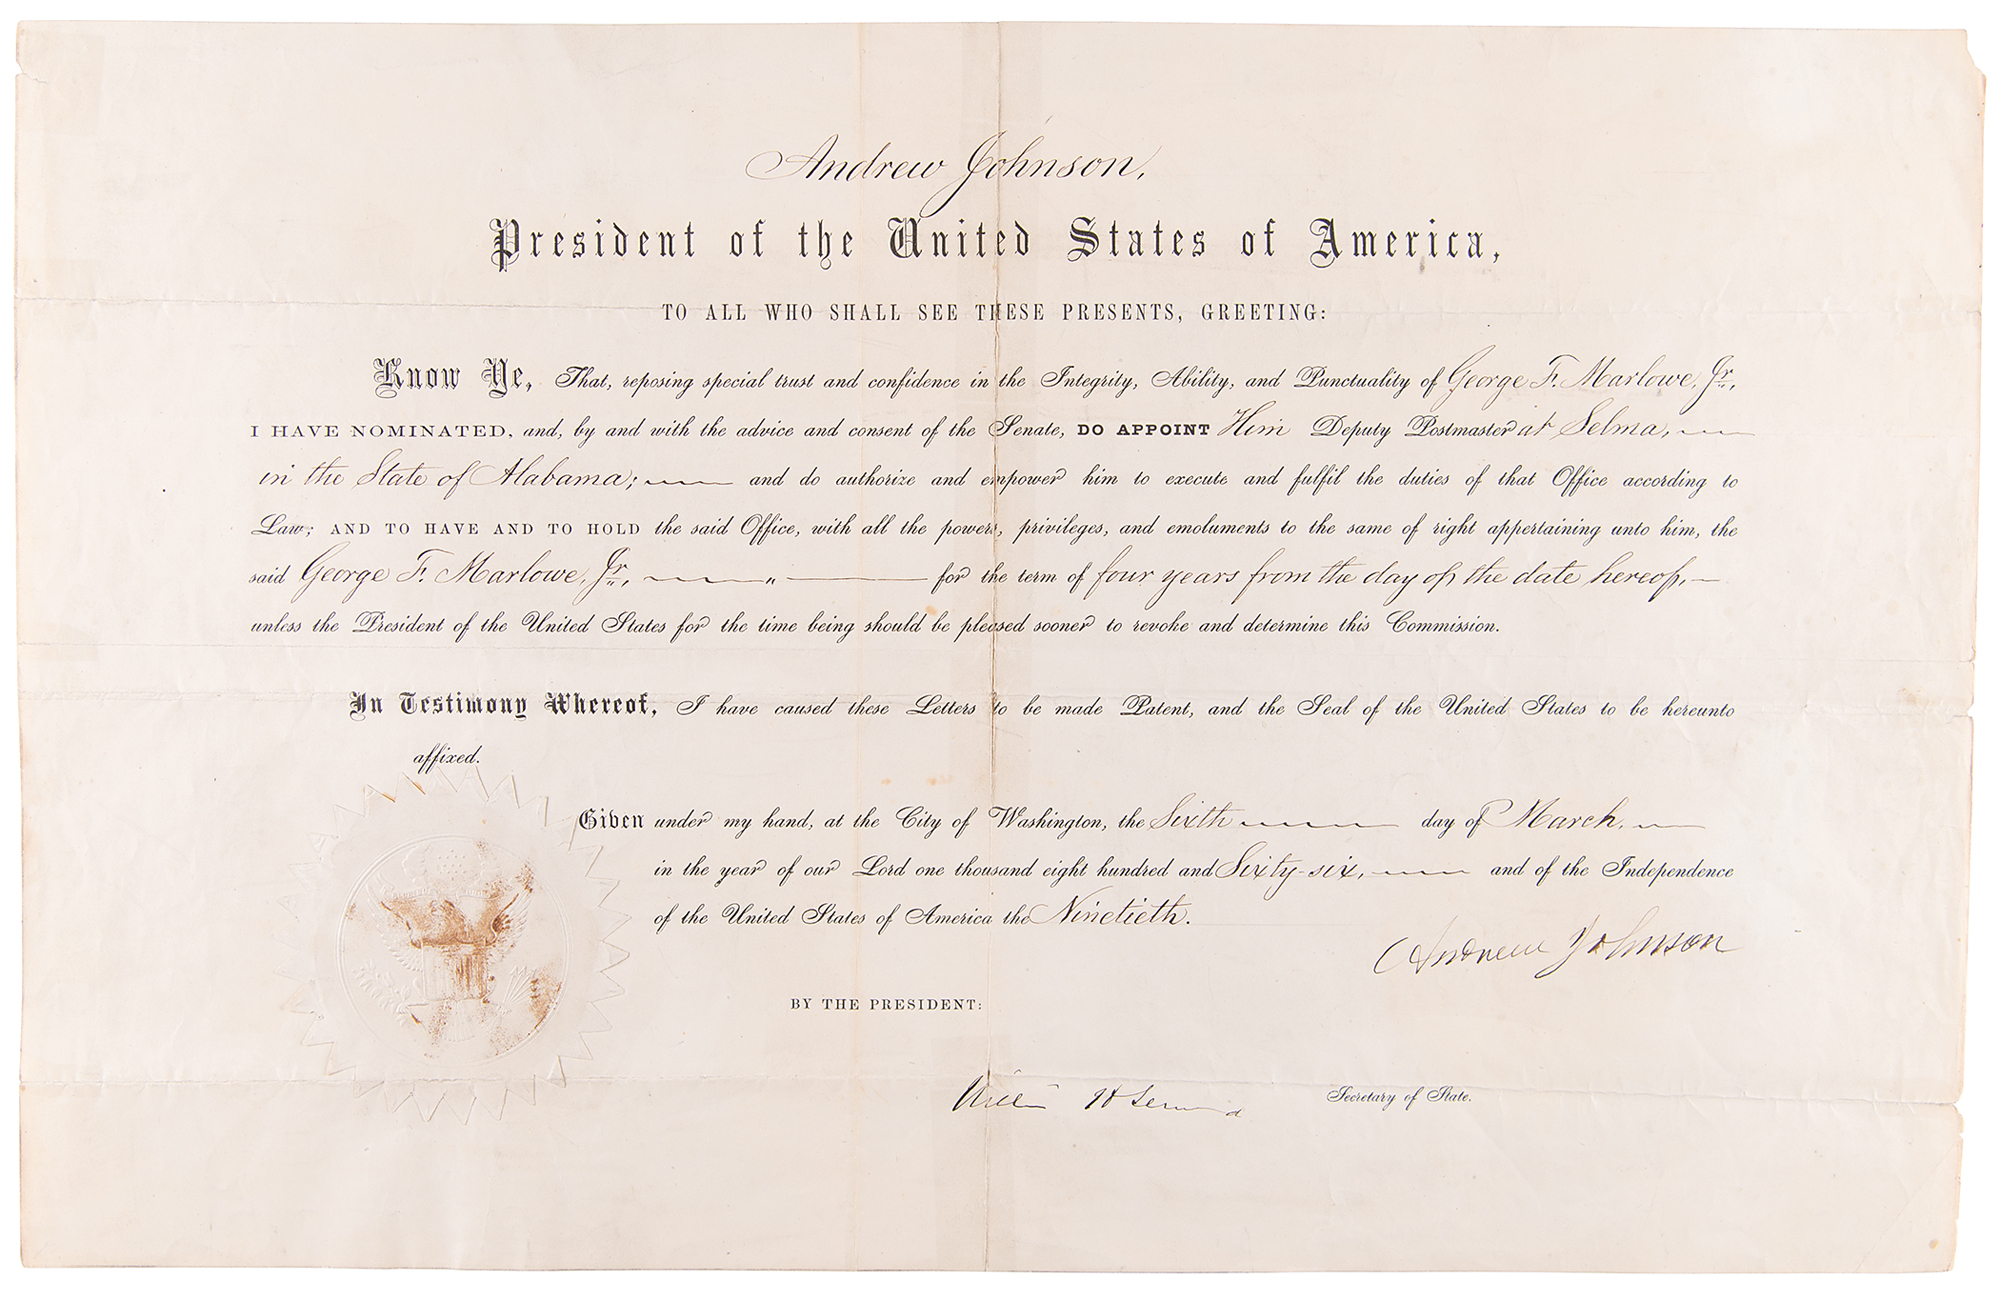 Andrew Johnson,
President of the United States of America,
TO ALL WHO SHALL SEE THESE PRESENTS, GREETING:
Know Ye, That, reposing special trust and confidence in the Integrity, Ability, and Punctuality of George F. Marlowe, Jr.,
I HAVE NOMINATED, and, by and with the advice and consent of the Senate, DO APPOINT Him Deputy Postmaster at Selma,
in the State of Alabama; and do authorize and empower him to execute and fulfil the duties of that Office according to
Law; AND TO HAVE AND TO HOLD the said Office, with all the powers, privileges, and emoluments to the same of right appertaining unto him, the
said George F. Marlowe, Jr., " for the term of four years from the day of the date hereof,
unless the President of the United States for the time being should be pleased sooner to revoke and determine this Commission.
In Testimony Whereof, I have caused these Letters to be made Patent, and the Seal of the United States to be hereunto
affixed.
Given under my hand, at the City of Washington, the Sixth day of March,
in the year of our Lord one thousand eight hundred and Sixty-six, and of the Independence
of the United States of America the Ninetieth.
Andrew Johnson
BY THE PRESIDENT:
William H Seward Secretary of State.